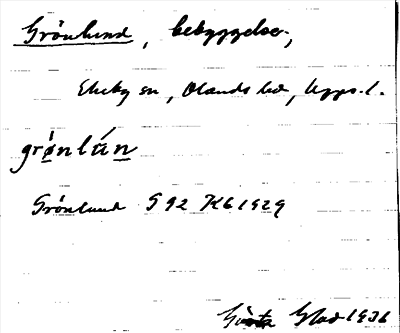 Grönlund, bebyggelse,
Ekeby sn, Olands hd, Upps. l.
grö́nlún
Grönlund S 92 Kb 1929
Gösta Glad 1931